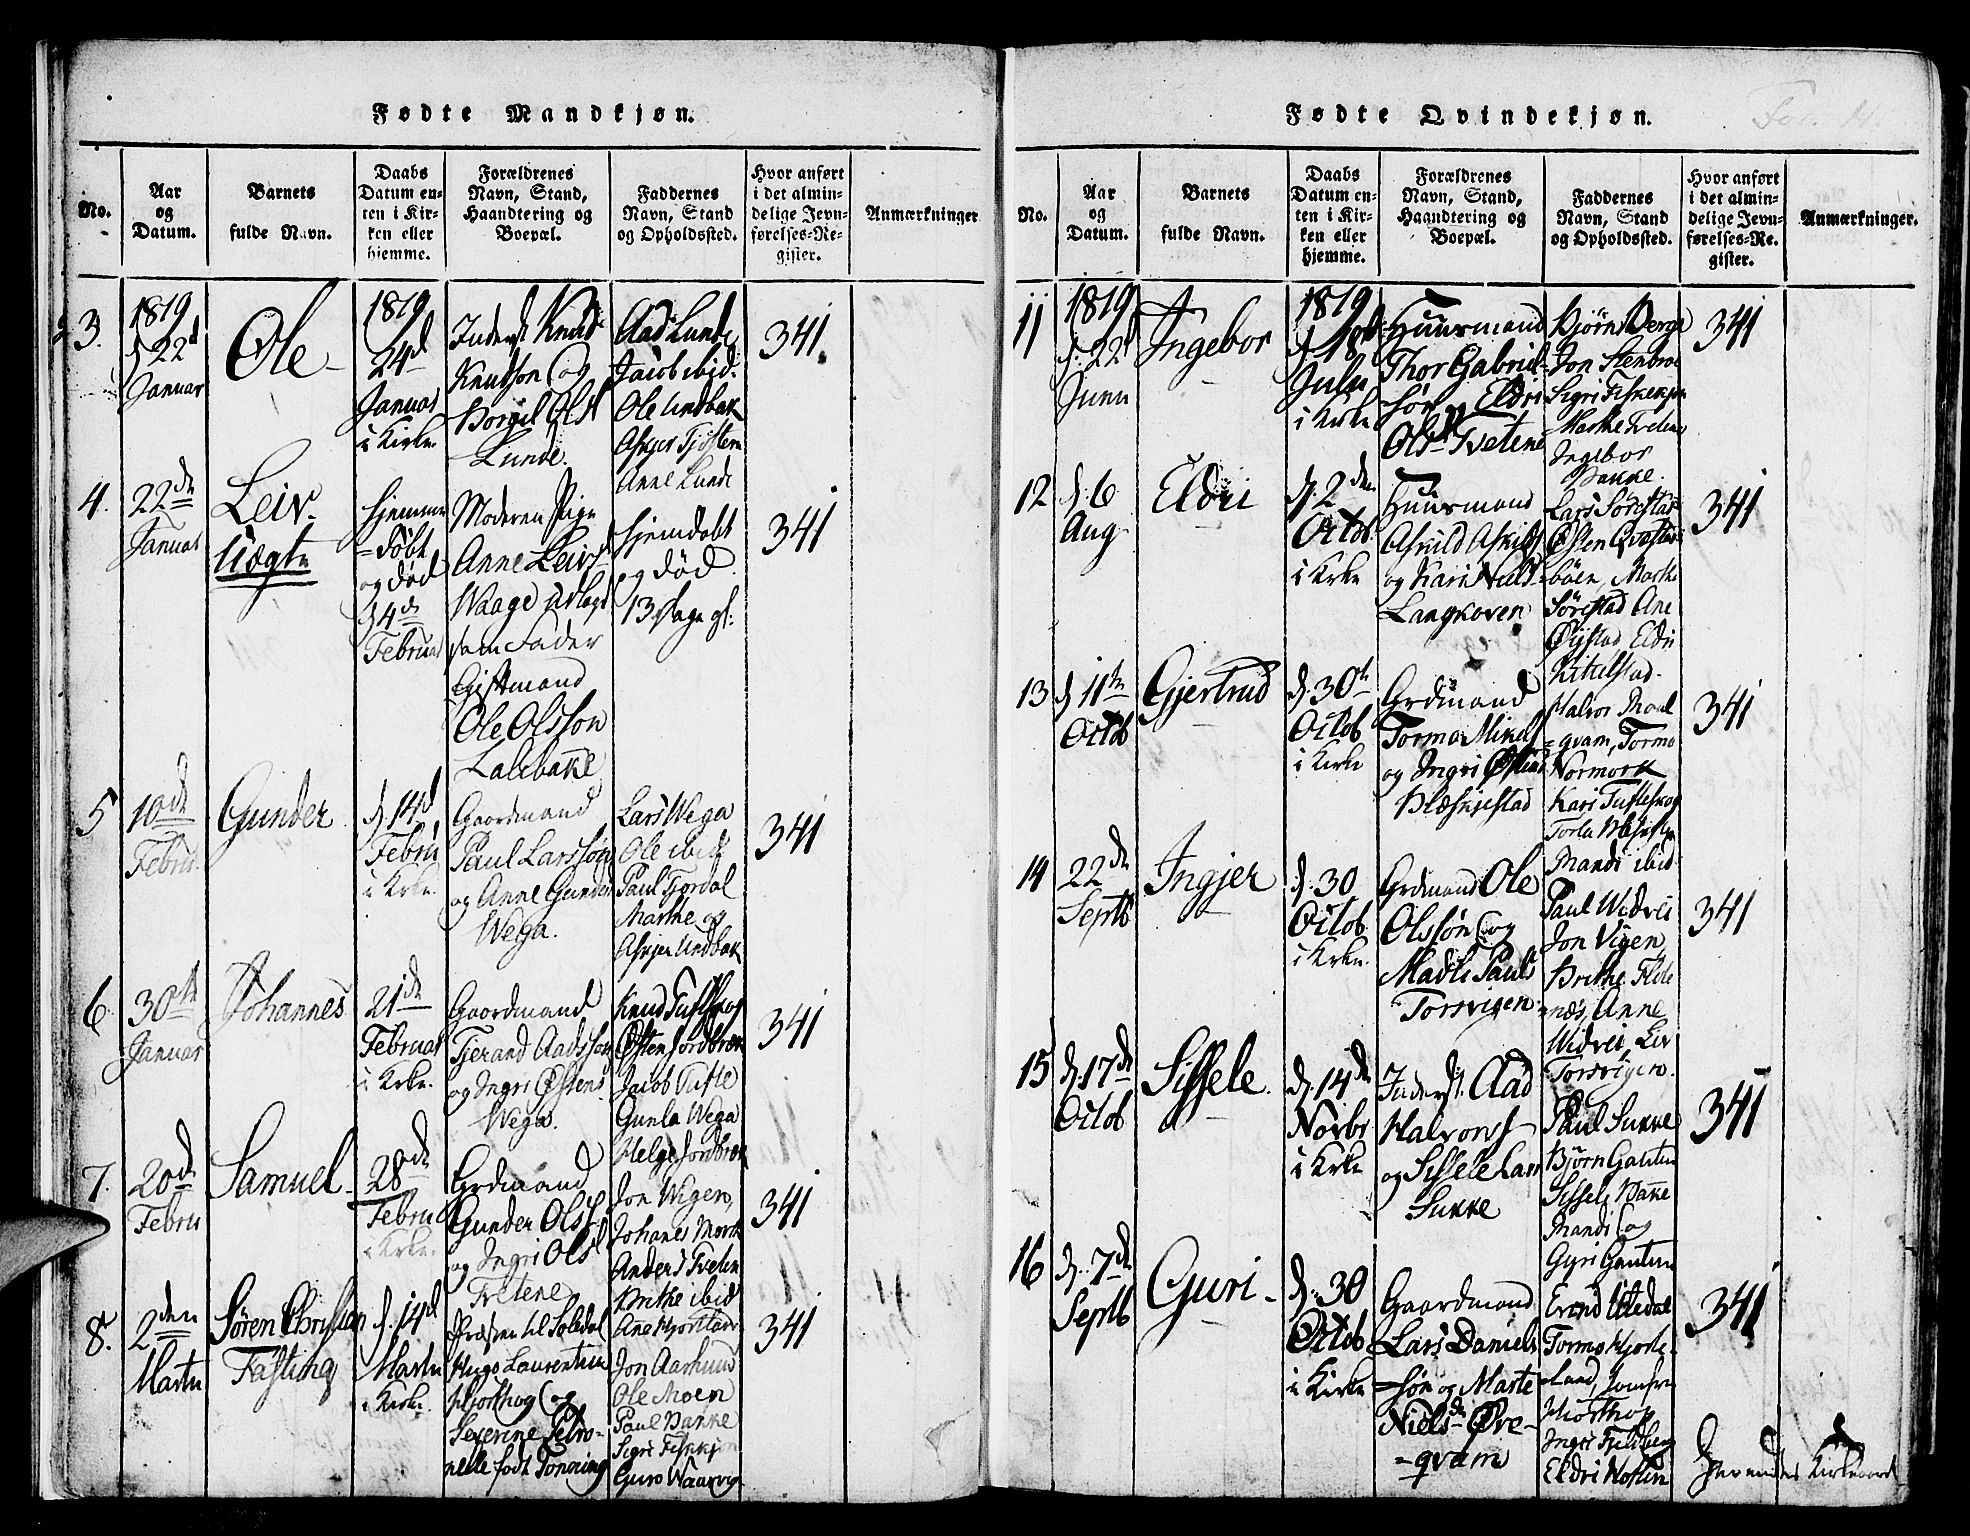 Fødte Mandkjøn.
No.
Aar
og
Datum.
Barnets
fulde Navn.
Daabs
Datum en-
ten i Kir-
ken eller
hjemme.
Forældrenes
Navn, Stand,
Haandtering og
Boepæl.
Faddernes
Navn, Stand
og Opholdssted.
Hvor anført
i det almin-
delige Jevn-
førelses-Re-
gister.
Anmærkninger
3.
1819
d 22d
Januar
Ole
1819
24d
Januar
i Kirke.
Inderst Knud
Knutson og
Borgil Olsd
Lunde.
Aad Lunde
Jacob ibid.
Ole Lindbak
Asgjer Tjösten
Anne Lunde
341.
4.
22de
Januar
Leiv.
Uægte
Hjemme
=døbt
og død
d 4de
Februar
Moderen Pige
Anne Leivs
Waage udlagt
som Fader
Giftmand
Ole Olsson
Lalibakke
Hjemdøbt
og død
13 Dage gl:
341
5
10de
Febru.
Gunder
d 14d
Febru
i Kirke.
Gaardmand
Paul Larssön
og Anne Gunders
Wega.
Lars Wega
Ole ibid
Paul Fjordal
Marthe og
Asgjer Lindbak
341
6
30te
Januar
Johannes
21de
Februar
i Kirke.
Gaardmand
Tjerand Aadsson
og Ingri Østens
Wega.
Knud Tufteskog
Østen Jordbræk
Jacob Tufte
Gunla Wega
Helge Jordbræk
341
7.
20de
Febru
Samuel
28de
Febru
i Kirke.
Grdmand
Gunder Olss
og Ingri Olsd
Tvetene
Jon Wigen,
Johanes Mork
Anders Tveten
Brithe ibid
Ane Hjorteland
341
8.
2den
Martii
Søren Christian
Fasting
d. 14d
Martii
i Kirke.
Præsten til Soledal
Hugo Laurentius
Hjorthog og
Severine Petro-
nelle født Tonning
Jon Aarhund
Ole Moen
Paul Bakke
Sigri Fiskekjøn
Guro Waarvig
341
Fødte Qvindekjøn.
No.
Aar
og
Datum.
Barnets
fulde Navn.
Daabs
Datum en-
ten i Kir-
ken eller
hjemme.
Forældrenes
Navn, Stand,
Haandtering og
Boepæl.
Faddernes
Navn, Stand
og Opholdssted.
Hvor anført
i det almin-
delige Jevn-
førelses-Re-
gister.
Anmærkninger.
11
1819
d. 22d
Junii
Ingebor
1819
d 18de
Julii
i Kirke
Huusmand
Thor Gabriel-
sön og Eldri
Olsd Tvetene
Bjørn Berge
Jon Stenbroe
Sigri Fiskekjøn
Marthe Tvetene
Ingebor
Bakke.
341
12
d. 6
Aug
Eldri
d. 2den
Octob
i Kirke
Huusmand
Askild Askilds
og Kari Nielsd
Langkoven
Lars Sørestad
Østen Qvæstad-
böen, Marthe
Sørestad Ane
Øystad Eldri
Kittelstad.
341
13
d 11te
Octob
Gjertrud
d. 30te
Octob
i Kirke
Grdmand
Tormo Mikels
og Ingri Østens
Blæskjestad
Halvor Moel
=qvam, Tormo
Normork
Kari Tufteskog
Torla Blæskjest
Mandi ibid.
341
14
22de
Septb
Ingjer
d. 30
Octob
i Kirke.
Grdmand Ole
Olssön og
Madli Pauls
Torsvigen
Paul Widvei
Jon Vigen
Brithe Elde
=næs, Anne
Widvei, Liv
Torsvigen.
341
15
d 17de
Octob
Sissele.
d. 14de
Novbr
i Kirke
Inderst. Aad
Halvorss
og Sissele Lars
Sukke
Paul Sukke
Bjørn Ganten
Sissele Bakke
Mandi og
Gyri Ganten
341
16
d. 7de
Septb
Guri
d. 30
Octob
i Kirke
Gaardmand
Lars Daniels
=sön og Marte
Nielsdr Øvre-
=qvam
Erind Utedal
Tormo Hjorte-
land, Jomfru
Hjorthog
Ingri Fjeldberg
Eldri Hosten
341